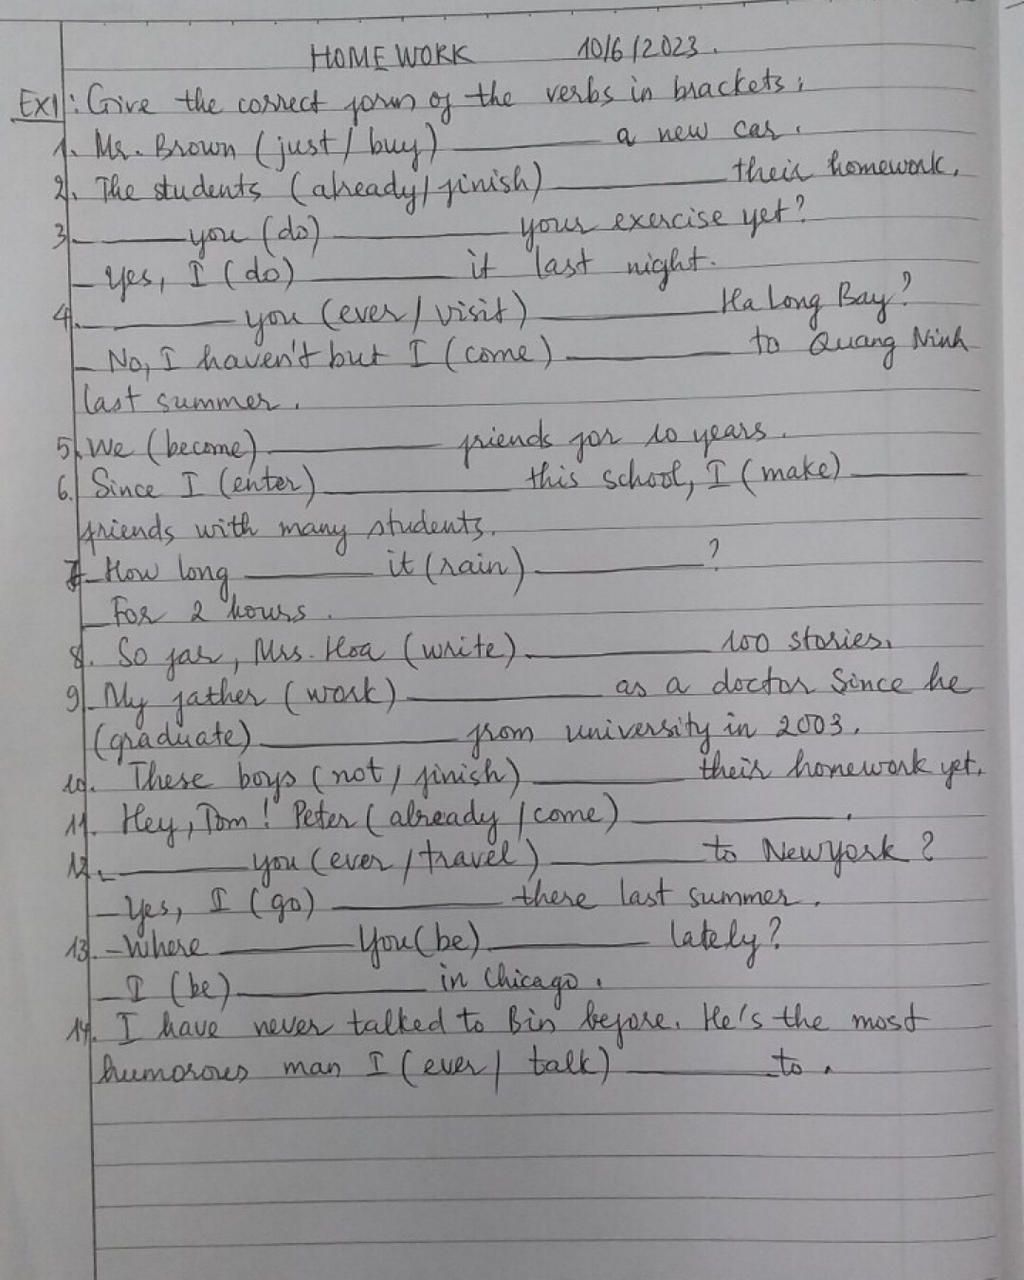 HOMEWORK 10/6/2023.
EX1: Give the correct form of the verbs in brackets:
1. Mr. Brown (just / buy) __________ a new car.
2. The students (already / finish) __________ their homework.
3. ________ you (do) __________ your exercise yet?
_ Yes, I (do) ________ it last night.
4. ________ you (ever / visit) __________ Ha Long Bay?
_ No, I haven't but I (come) ________ to Quang Ninh
last summer.
5. We (become) __________ friends for 10 years.
6. Since I (enter) __________ this school, I (make) ______
friends with many students.
7. How long ______ it (rain) ________?
_ For 2 hours.
8. So far, Mrs. Hoa (write) __________ 100 stories.
9. My father (work) __________ as a doctor since he
(graduate) __________ from university in 2003.
10. These boys (not / finish) ________ their homework yet.
11. Hey, Tom! Peter (already / come) __________.
12. _ ________ you (ever / travel) ________ to Newyork?
_ Yes, I (go) ________ there last summer.
13. - Where ________ You (be) ________ lately?
_ I (be) __________ in Chicago.
14. I have never talked to Bin before. He's the most
humorous man I (ever / talk) ________ to.